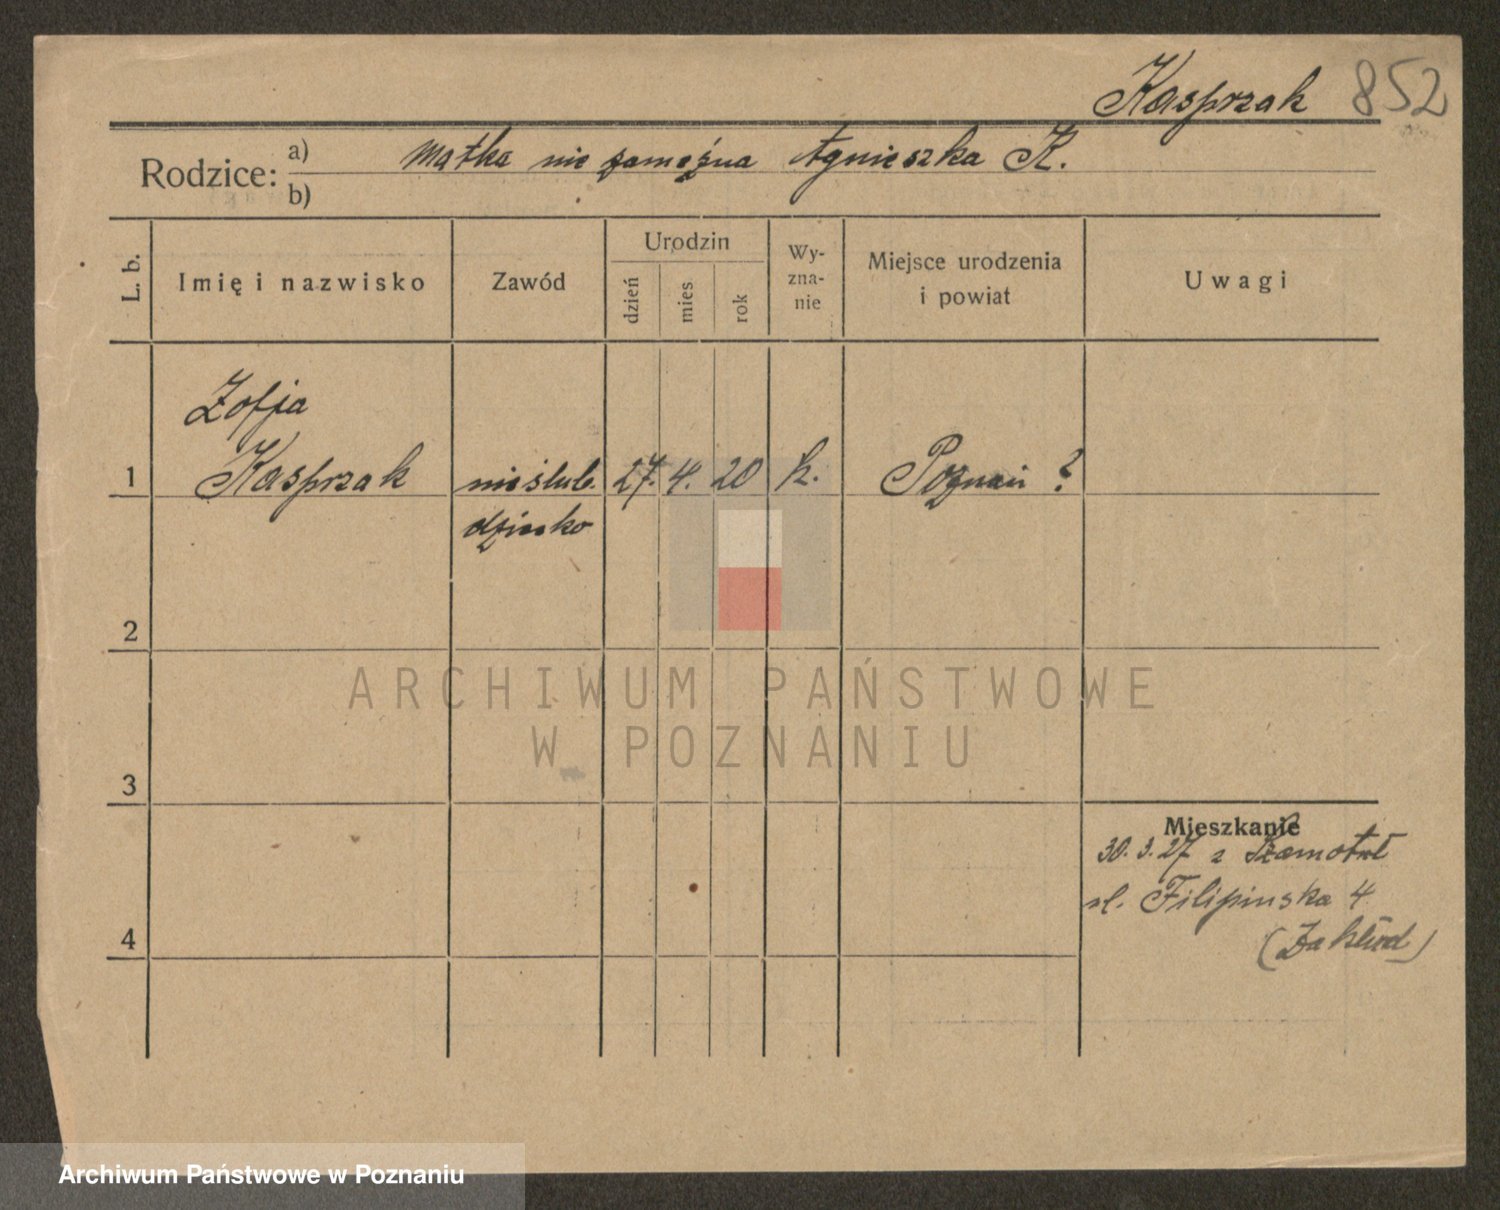 Kasprzak 852
Rodzice: a) matka nie zamężna Agnieszka K.
b)
L. b.
Imię i nazwisko
Zawód
Urodzin
dzień
mies
rok
Wy-
zna-
nie
Miejsce urodzenia
i powiat
Uwagi
Zofja
1 Kasprzak nieślub. 27. 4. 20 k. Poznań ?
dziecko
2
ARCHIWUM PAŃSTWOWE
W POZNANIU
3
Mieszkanie
30. 3. 27 z Szamotuł
ul. Filipinska 4
(Zakład)
4
Archiwum Państwowe w Poznaniu